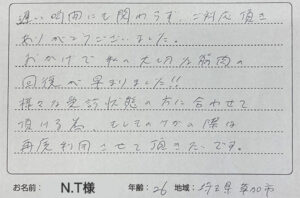 遅い時間にも関わらず、ご対応頂き
ありがとうございました。
おかげで私の大切な筋肉の
回復が早まりました!!
様々な受診状態の方に合わせて
頂ける為、もしもの際は
再度利用させて頂きたいです。
お名前: N.T様 年齢: 26 地域: 埼玉県草加市